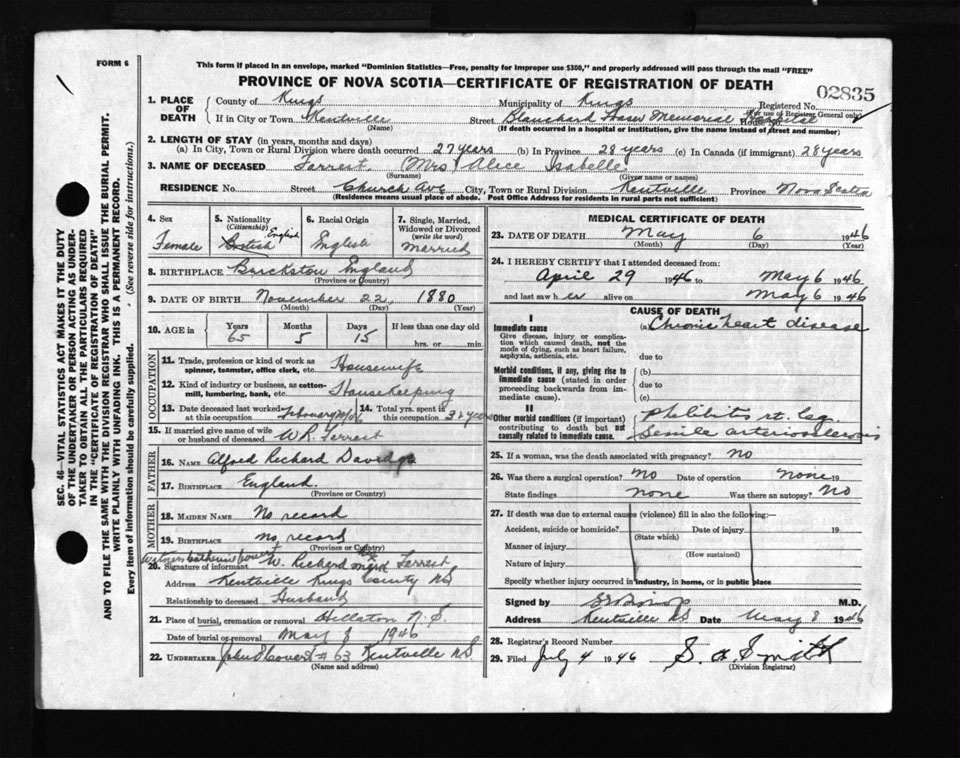 FORM 6
This form if placed in an envelope, marked "Dominion Statistics—Free, penalty for improper use $300," and properly addressed will pass through the mail "FREE"
PROVINCE OF NOVA SCOTIA—CERTIFICATE OF REGISTRATION OF DEATH
02835
1. PLACE OF DEATH County of Kings Municipality of Kings Registered No.
(For use of Registrar General only)
If in City or Town Kentville Street Blanchard Memorial Hospital House No.
(Name) (If death occurred in a hospital or institution, give the name instead of street and number)
2. LENGTH OF STAY (in years, months and days)
(a) In City, Town or Rural Division where death occurred 27 years (b) In Province 28 years (c) In Canada (if immigrant) 28 years
3. NAME OF DECEASED Forrest, (Mrs) Alice Isabelle
(Surname) (Given name or names)
RESIDENCE No. Street Church Ave City, Town or Rural Division Kentville Province Nova Scotia
(Residence means usual place of abode. Post Office Address for residents in rural parts not sufficient)
4. Sex Female
5. Nationality (Citizenship) British English
6. Racial Origin English
7. Single, Married, Widowed or Divorced (write the word) Married
8. BIRTHPLACE England
(Province or Country)
9. DATE OF BIRTH November 22, 1880
(Month) (Day) (Year)
10. AGE in Years 65 Months 5 Days 15 If less than one full day hrs. or min.
OCCUPATION
11. Trade, profession or kind of work as spinner, teamster, office clerk, etc. Housewife
12. Kind of industry or business, as cotton-mill, lumbering, bank, etc. Housekeeping
13. Date deceased last worked at this occupation
14. Total yrs. spent in this occupation years
15. If married give name of wife or husband of deceased W R. Forrest
FATHER
16. NAME Alfred Richard
17. BIRTHPLACE England.
(Province or Country)
MOTHER
18. MAIDEN NAME No record
19. BIRTHPLACE no record
(Province or Country)
20. Signature of informant W. Richard Forrest
Address Kentville Kings County NS
Relationship to deceased Husband
21. Place of burial, cremation or removal Hillaton N.S.
Date of burial or removal May 8 1946
22. UNDERTAKER # 63 Kentville NS.
(Name and address)
MEDICAL CERTIFICATE OF DEATH
23. DATE OF DEATH May 6 1946
(Month) (Day) (Year)
24. I HEREBY CERTIFY that I attended deceased from:
April 29 1946 to May 6 1946
and last saw her alive on May 6 1946
CAUSE OF DEATH
I
Immediate cause (a) Chronic heart disease
Give disease, injury or complication which caused death, not the mode of dying, such as heart failure, asphyxia, asthenia, etc.
due to
Morbid conditions, if any, giving rise to immediate cause (stated in order proceeding backwards from immediate cause).
(b)
due to
(c)
II
Other morbid conditions (if important) contributing to death but not causally related to immediate cause.
Phlibitis rt. leg
Senile arteriosclerosis
25. If a woman, was the death associated with pregnancy? no
26. Was there a surgical operation? No Date of operation none 19
State findings none Was there an autopsy? No
27. If death was due to external causes (violence) fill in also the following:—
Accident, suicide or homicide? Date of injury 19
(State which)
Manner of injury
(How sustained)
Nature of injury
Specify whether injury occurred in industry, in home, or in public place
Signed by M.D.
Address Kentville NS Date May 8 1946
28. Registrar's Record Number
29. Filed July 4 1946 Smith
(Division Registrar)
SEC. 46—VITAL STATISTICS ACT MAKES IT THE DUTY
OF THE UNDERTAKER OR PERSON ACTING AS UNDERTAKER TO OBTAIN ALL THE PARTICULARS REQUIRED
IN THE "CERTIFICATE OF REGISTRATION OF DEATH"
AND TO FILE THE SAME WITH THE DIVISION REGISTRAR WHO SHALL ISSUE THE BURIAL PERMIT.
WRITE PLAINLY WITH UNFADING INK. THIS IS A PERMANENT RECORD.
Every item of information should be carefully supplied. (See reverse side for instructions.)